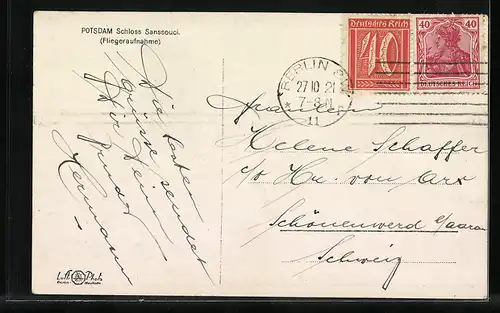 POTSDAM Schloss Sanssouci.
(Fliegeraufnahme)
Die besten
Grüsse sendet
Dir Dein
Freund
Hermann
Deutsches Reich
10
40 40
DEUTSCHES REICH
BERLIN
27.10.21
7-8 N
11
Fräulein
Helene Schaffer
c/o Hr. von Arx
Schönenwerd b/Aarau
Schweiz
Luft Photo